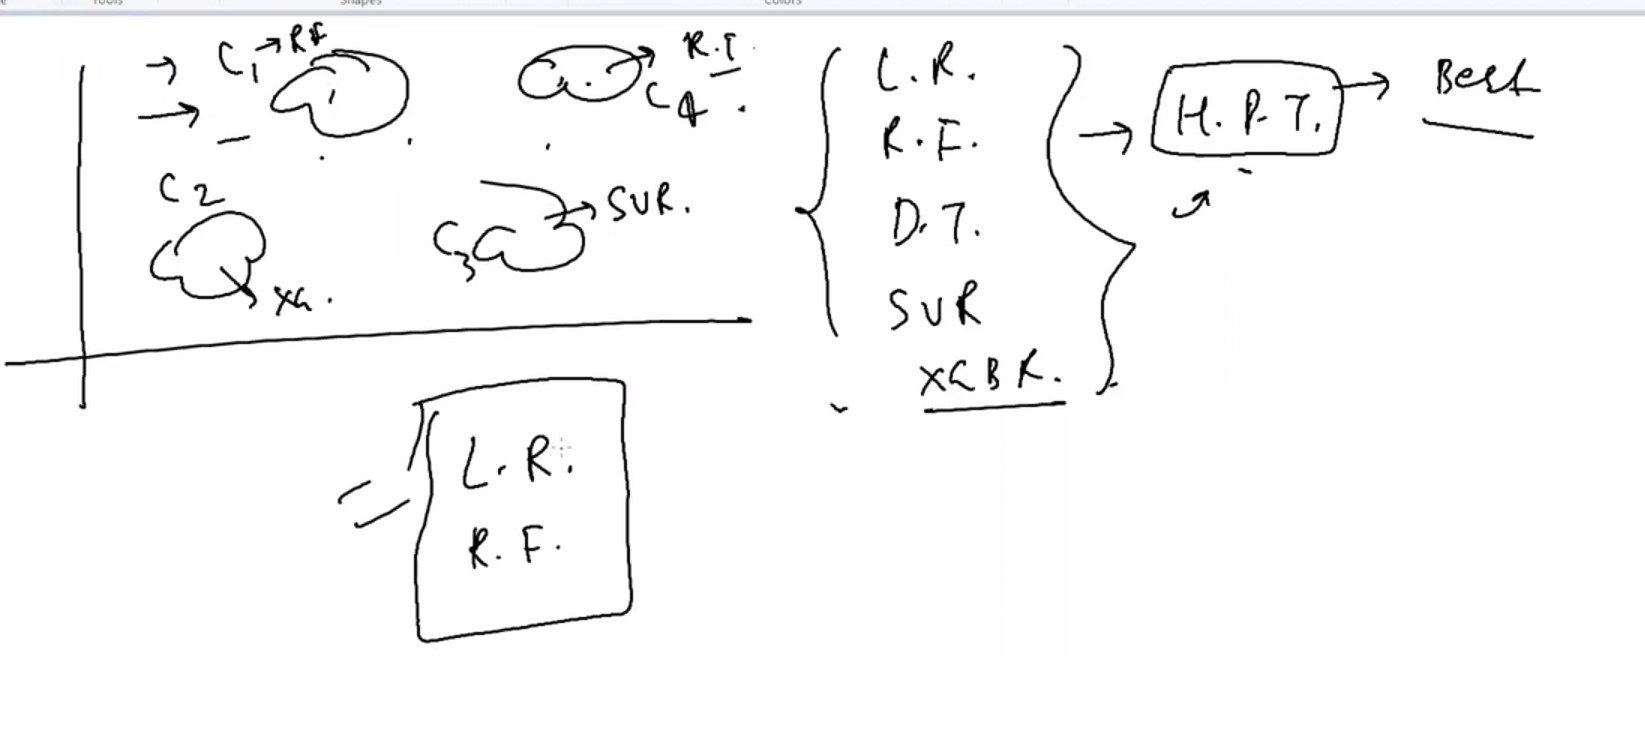 Tools Shapes Colors
C1 → RF
R.F.
C4
C2
XG.
C3
SVR.
L.R.
R.F.
D.T.
SVR
XGBR.
H.P.T.
Best
L.R.
R.F.